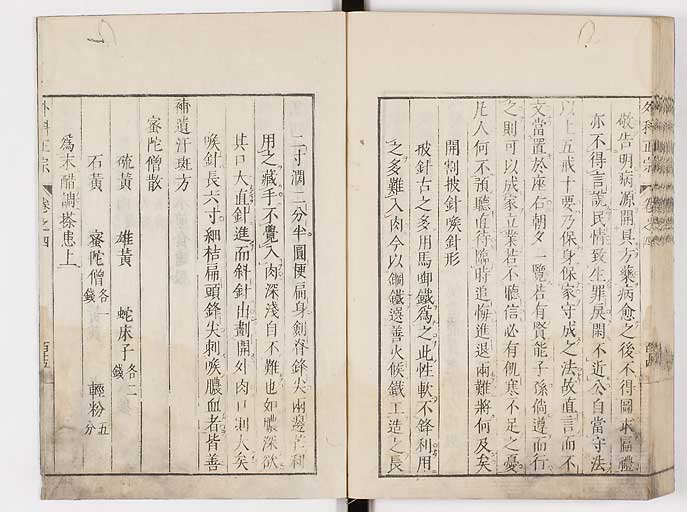 外科正宗 卷之四
敬告明病源開具方藥病愈之後不得圖求匾禮
亦不得言說民情致生罪戾閑不近公自當守法
以上五戒十要乃保身保家守成之法故直言而不
文當置於座右朝夕一覽若有賢能子孫倘遵而行
之則可以成家立業若不聽信必有飢寒不足之憂
凡人何不預聽直待臨時追悔進退兩難將何及矣
開割披針喉針形
披針古之多用馬啣鐵爲之此性軟不鋒利用
之多難入肉今以鋼鐵選善火候鐵工造之長
二寸濶二分半圓梗扁身劍脊鋒尖兩邊芒利
用之藏手不覺入肉深淺自不難也如膿深欲
其口大直針進而斜針出劃開外肉口則大矣
喉針長六寸細梃扁頭鋒尖刺喉膿血者皆善
補遺汗斑方
蜜陀僧散
硫黃 雄黃 蛇床子各二錢
石黃 蜜陀僧各一錢 輕粉五分
爲末醋調搽患上
外科正宗 卷之四